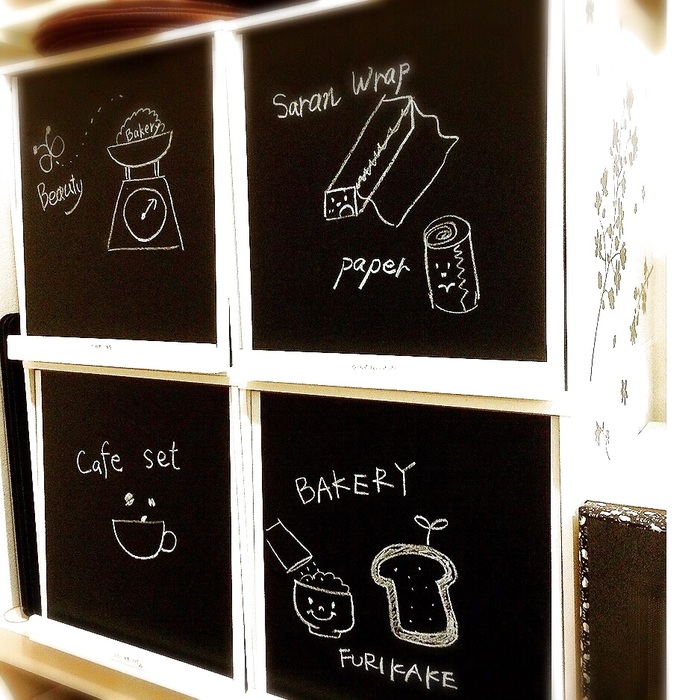 Bakery
Beauty
Saran Wrap
paper
Cafe set
BAKERY
FURIKAKE